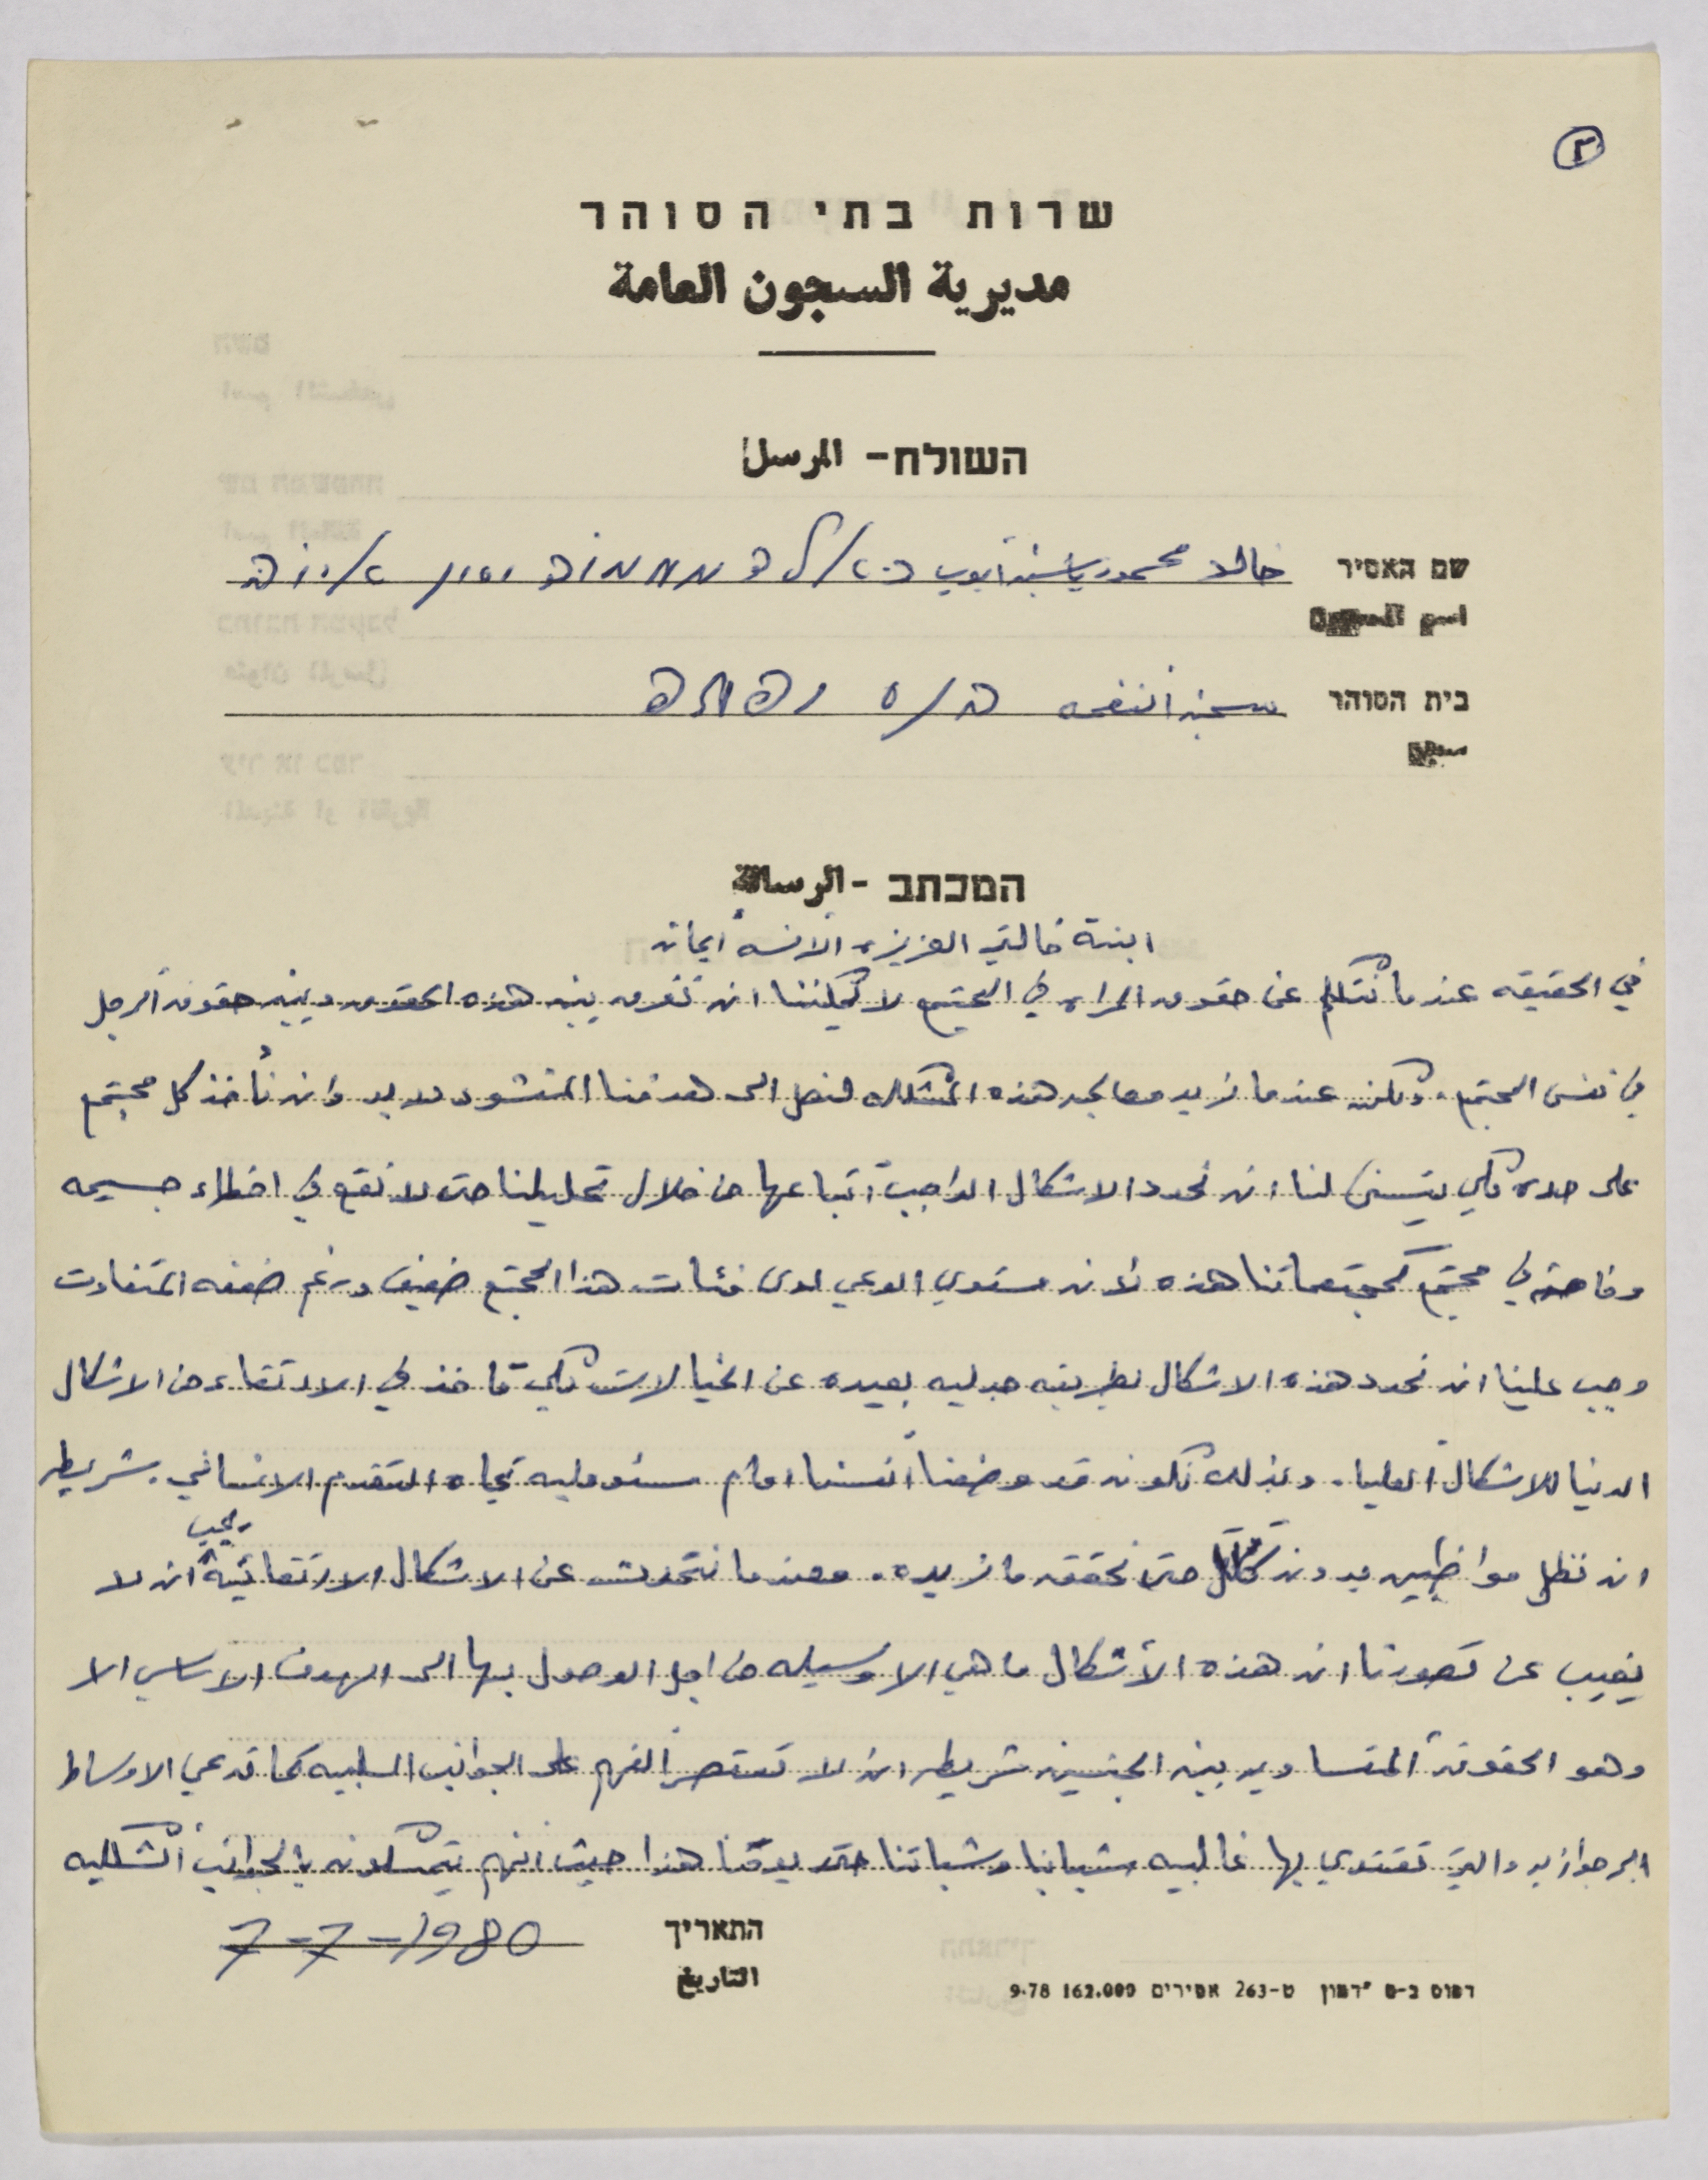 ٢
שרות בתי הסוהר
مديرية السجون العامة
השולח - المرسل
שם האסיר خالد محمود ياسين ايوب
اسم
בית הסוהר سجن النفحه
سجن
המכתב - الرسالة
ابنة خالتي العزيزه الانسه ايمان
في الحقيقه عندما نتكلم عن حقوق المراه في المجتمع لا يمكننا ان نفرق بين هذه الحقوق وبين حقوق الرجل
في نفس المجتمع. ولكن عندما نريد معالجه هذه المشكله لنصل الى هدفنا المنشود لابد وان نأخذ كل مجتمع
على حده لكي يتسنى لنا ان نحدد الاشكال الواجب اتباعها من خلال تحليلنا حتى لا نقع في اخطاء جسيمه
وخاصة في مجتمع كمجتمعاتنا هذه لان مستوى الوعي لدى فئات هذا المجتمع ضعيف ورغم ضعفه المتفاوت
وجب علينا ان نحدد هذه الاشكال بطريقه جدليه بعيده عن الخيالات لكي تاخذ في الارتقاء من الاشكال
الدنيا للاشكال العليا. وبذلك نكون قد وضعنا انفسنا امام مسئوليه تجاه التقدم الانساني. شريطه
ان نظل مواظبين بدون كلل حتى نحقق ما نريده. وعندما نتحدث عن الاشكال الارتقائية يجب ان لا
يغيب عن تصورنا ان هذه الأشكال ما هي الا وسيله من اجل الوصول بها الى الهدف الاساسي الا
وهو الحقوق المتساويه بين الجنسين شريطه ان لا تقتصر الفهم على الجوانب السلبيه كما تدعي الاوساط
البرجوازيه والتي تقتدي بها غالبيه شبابنا وشباتنا حتى يومنا هذا حيث انهم يتمسكون بالجوانب الشكليه
התאריך 7-7-1980
التاريخ
דפוס ב-ס "דמון ט-263 אסירים 162.000 9.78